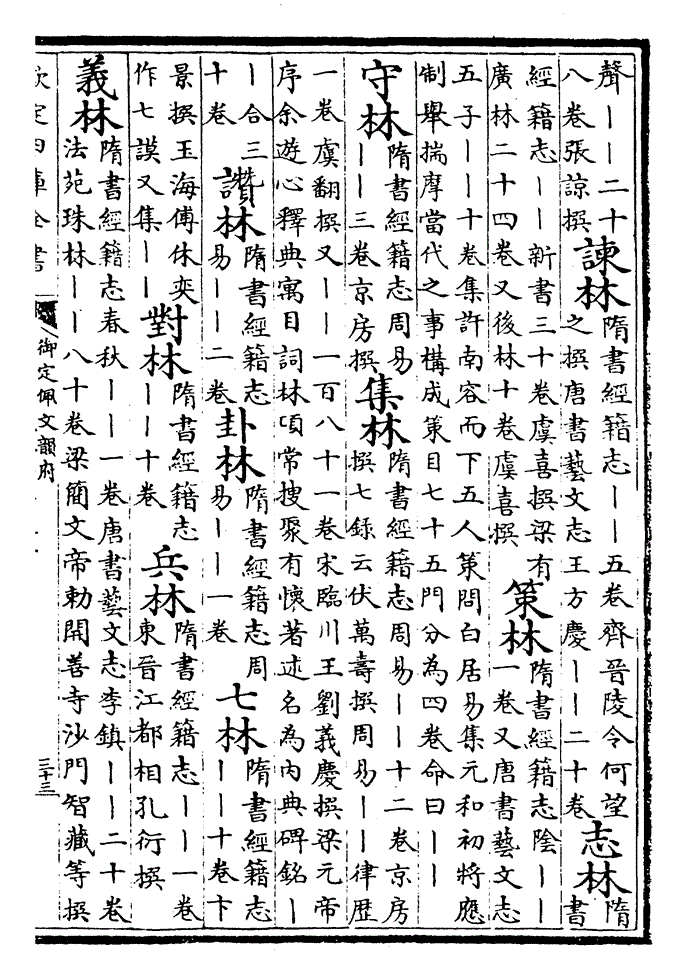 聲丨丨二十八卷張諒撰 諫林 隋書經籍志丨丨五卷齊晉陵令何望之撰唐書藝文志王方慶丨丨二十卷 志林 隋書
經籍志丨丨新書三十卷虞喜撰梁有廣林二十四卷又後林十卷虞喜撰 策林 隋書經籍志陰丨丨一卷又唐書藝文志
五子丨丨十卷集許南容而下五人策問白居易集元和初將應制舉揣摩當代之事構成策目七十五門分為四卷命曰丨丨
守林 隋書經籍志周易丨丨三卷京房撰 集林 隋書經籍志周易丨丨十二卷京房撰七錄云伏萬壽撰周易丨丨律歴
一卷虞翻撰又丨丨一百八十一卷宋臨川王劉義慶撰梁元帝序余遊心釋典寓目詞林頃常搜聚有懷著述名為內典碑銘丨
丨合三十卷 讚林 隋書經籍志易丨丨二卷 卦林 隋書經籍志周易丨丨一卷 七林 隋書經籍志丨丨十卷卞
景撰玉海傅休奕作七謨又集丨丨 對林 隋書經籍志丨丨十卷 兵林 隋書經籍志丨丨一卷東晉江都相孔衍撰
義林 隋書經籍志春秋丨丨一卷唐書藝文志李鎮丨丨二十卷法苑珠林丨丨八十卷梁簡文帝勅開善寺沙門智藏等撰
欽定四庫全書 御定佩文韻府 三十三